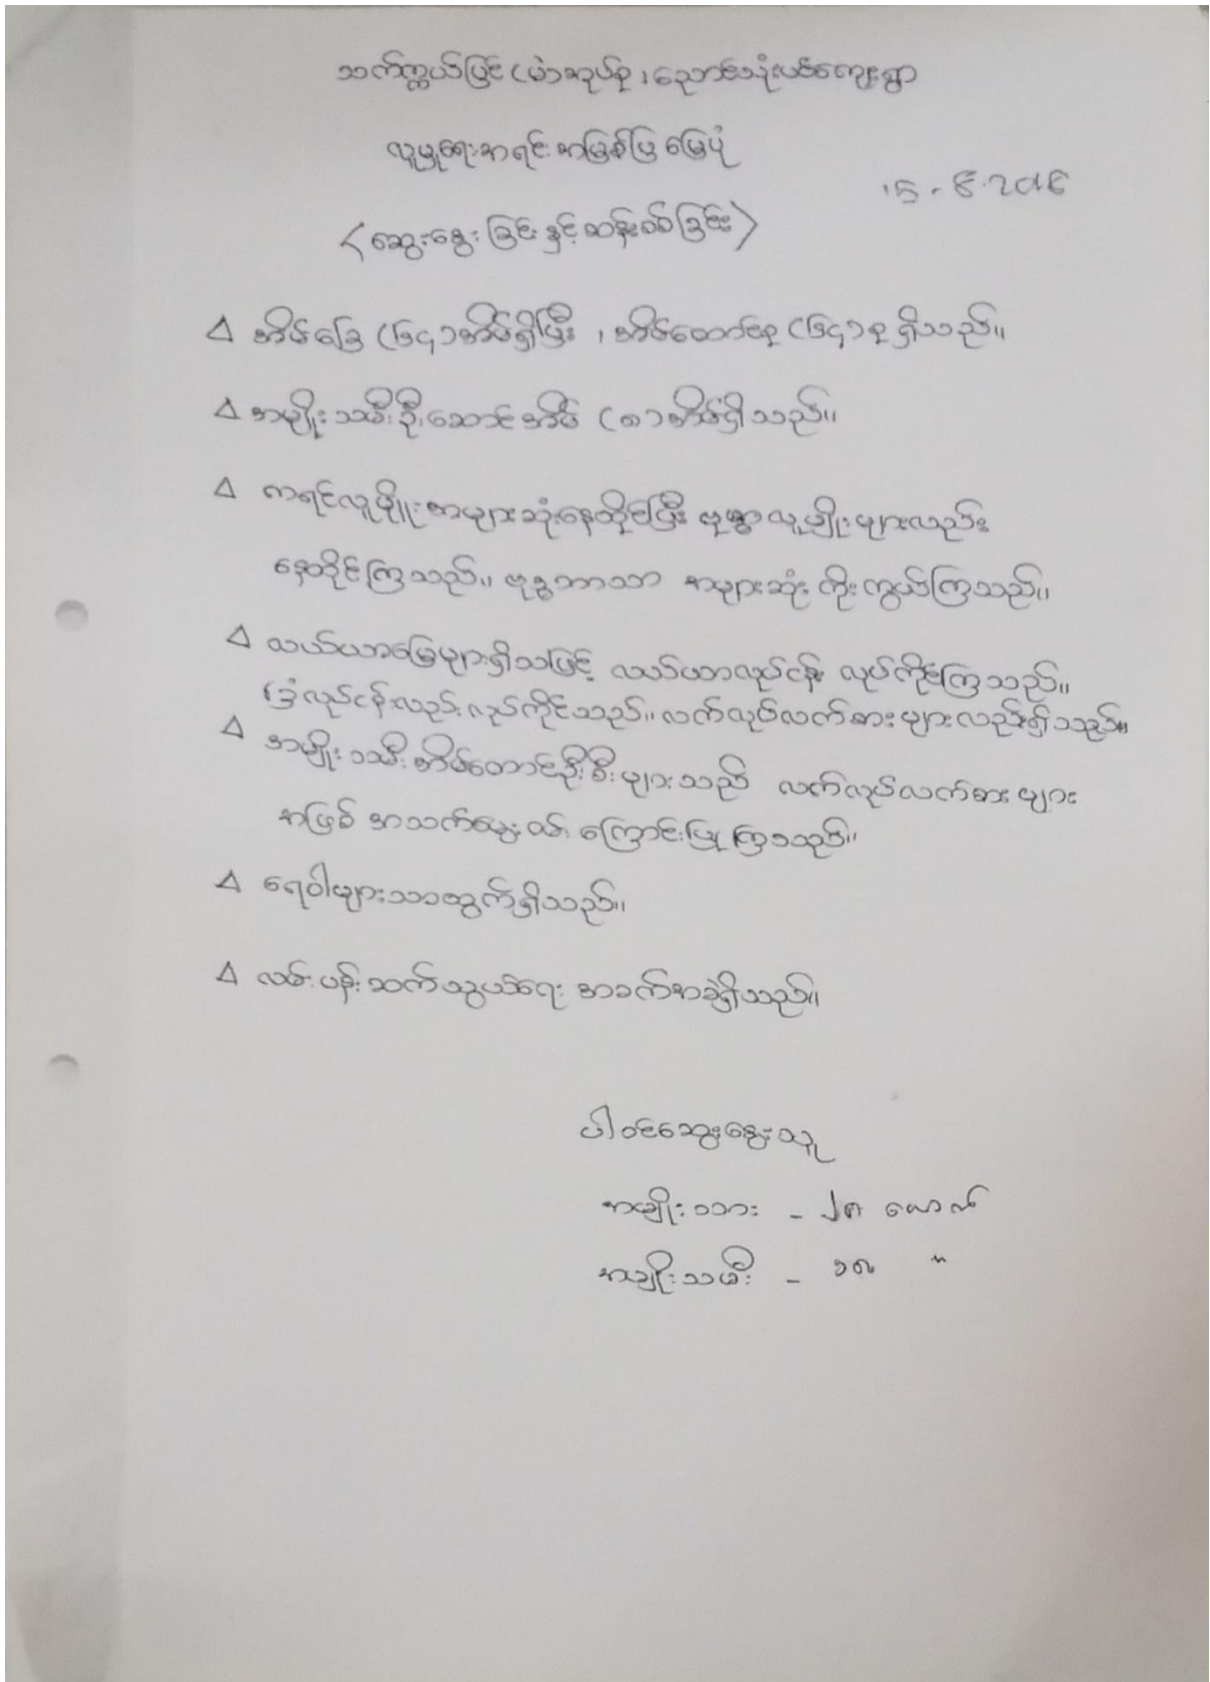 သက်ကယ်ပြင် (မဲဆုပ်စု) ၊ ညောင်သုံးပင်ကျေးရွာ
လူမှုရေးအရင်းအမြစ်ပြ မြေပုံ
15 - 8.2018
<ဆွေးနွေးခြင်းနှင့် ဆန်းစစ်ခြင်း>
△ အိမ်ခြေ (၆၄) အိမ်ရှိပြီး ၊ အိမ်ထောင်စု (၆၄) စု ရှိသည်။
△ အမျိုးသမီးဦးဆောင်အိမ် (၈) အိမ်ရှိသည်။
△ ကရင်လူမျိုးအများဆုံးနေထိုင်ပြီး ဗမာလူမျိုးများလည်း
နေထိုင်ကြသည်။ ဗုဒ္ဓဘာသာ အများဆုံး ကိုးကွယ်ကြသည်။
△ လယ်ယာမြေများရှိသဖြင့် လယ်ယာလုပ်ငန်း လုပ်ကိုင်ကြသည်။
ခြံလုပ်ငန်းလည်း လုပ်ကိုင်သည်။ လက်လုပ်လက်စားများလည်းရှိသည်။
△ အမျိုးသမီးအိမ်ထောင်ဦးစီးများသည် လက်လုပ်လက်စားများ
အဖြစ် အသက်မွေးဝမ်းကြောင်းပြုကြသည်။
△ ရေဝါများသာထွက်ရှိသည်။
△ လမ်းပန်းဆက်သွယ်ရေး အခက်အခဲရှိသည်။
ပါဝင်ဆွေးနွေးသူ
အမျိုးသား - ၂၈ ယောက်
အမျိုးသမီး - ၁၈ "